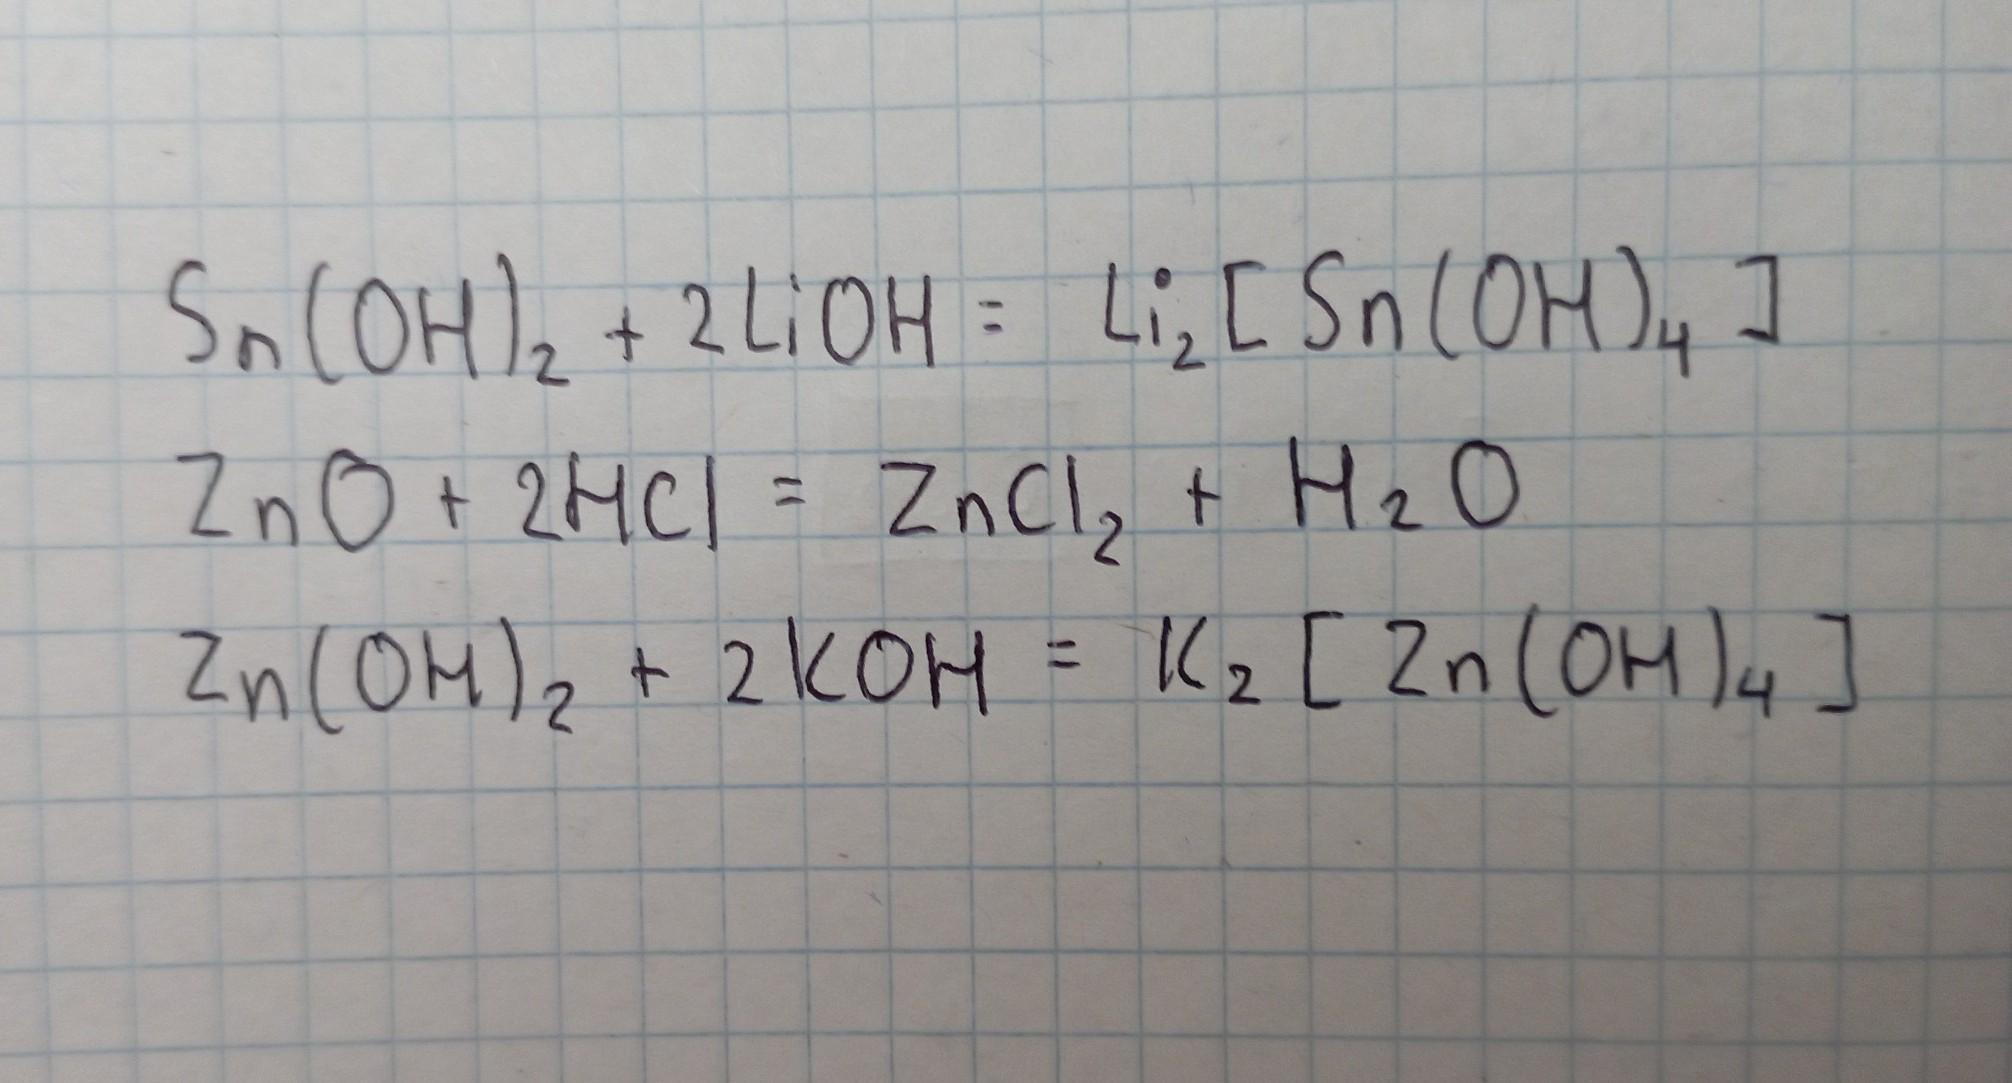 Sn(OH)₂ + 2LiOH = Li₂[Sn(OH)₄]
ZnO + 2HCl = ZnCl₂ + H₂O
Zn(OH)₂ + 2KOH = K₂[Zn(OH)₄]